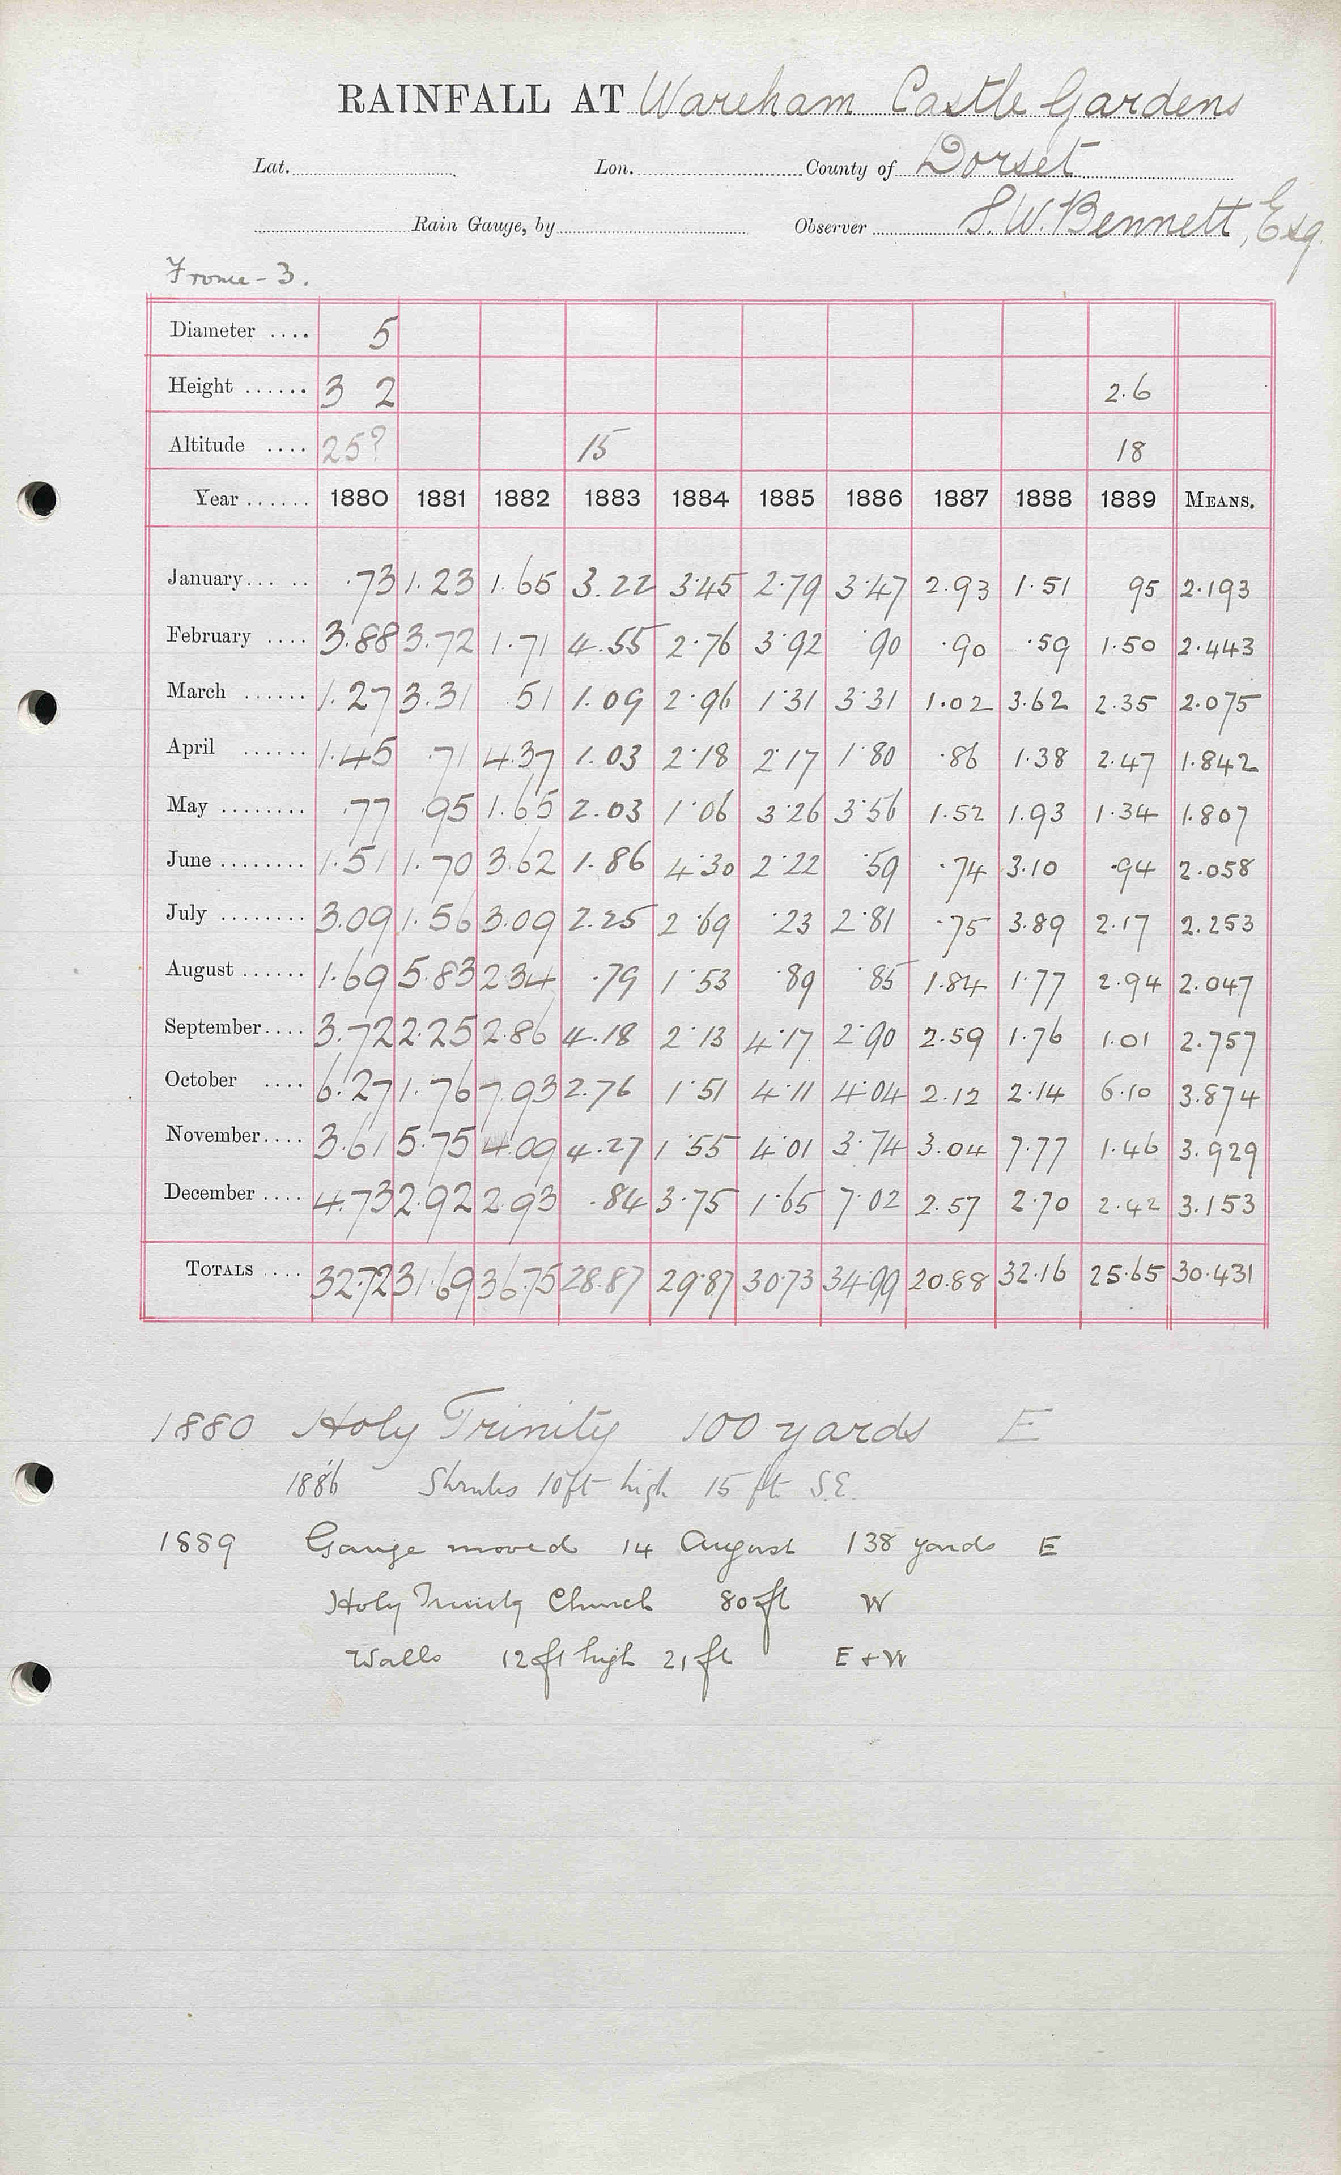 RAINFALL AT Wareham Castle Gardens
Lat. Lon. County of Dorset
Rain Gauge, by Observer S.W. Bennett, Esq.
Frome - 3.
Diameter .... 5
Height ...... 3 2 2.6
Altitude .... 25? 15 18
Year ...... 1880 1881 1882 1883 1884 1885 1886 1887 1888 1889 MEANS.
January ... .. .73 1.23 1.65 3.22 3.45 2.79 3.47 2.93 1.51 95 2.193
February .... 3.88 3.72 1.71 4.55 2.76 3.92 .90 .90 .59 1.50 2.443
March ...... 1.27 3.31 .51 1.09 2.96 1.31 3.31 1.02 3.62 2.35 2.075
April ...... 1.45 .71 4.37 1.03 2.18 2.17 1.80 .86 1.38 2.47 1.842
May ........ .77 .95 1.65 2.03 1.06 3.26 3.56 1.52 1.93 1.34 1.807
June ........ 1.51 1.70 3.62 1.86 4.30 2.22 .59 .74 3.10 .94 2.058
July ........ 3.09 1.56 3.09 2.25 2.69 .23 2.81 .75 3.89 2.17 2.253
August ...... 1.69 5.83 2.34 .79 1.53 .89 .85 1.84 1.77 2.94 2.047
September .... 3.72 2.25 2.86 4.18 2.13 4.17 2.90 2.59 1.76 1.01 2.757
October .... 6.27 1.76 7.93 2.76 1.51 4.11 4.04 2.12 2.14 6.10 3.874
November .... 3.61 5.75 4.09 4.27 1.55 4.01 3.74 3.04 7.77 1.46 3.929
December .... 4.73 2.92 2.93 .84 3.75 1.65 7.02 2.57 2.70 2.42 3.153
TOTALS .... 32.72 31.69 36.75 28.87 29.87 30.73 34.99 20.88 32.16 25.65 30.431
1880 Holy Trinity 100 yards E
1886 Shrubs 10ft high 15 ft S.E.
1889 Gauge moved 14 August 138 yards E
Holy Trinity Church 80 ft W
Walls 12 ft high 21 ft E + W